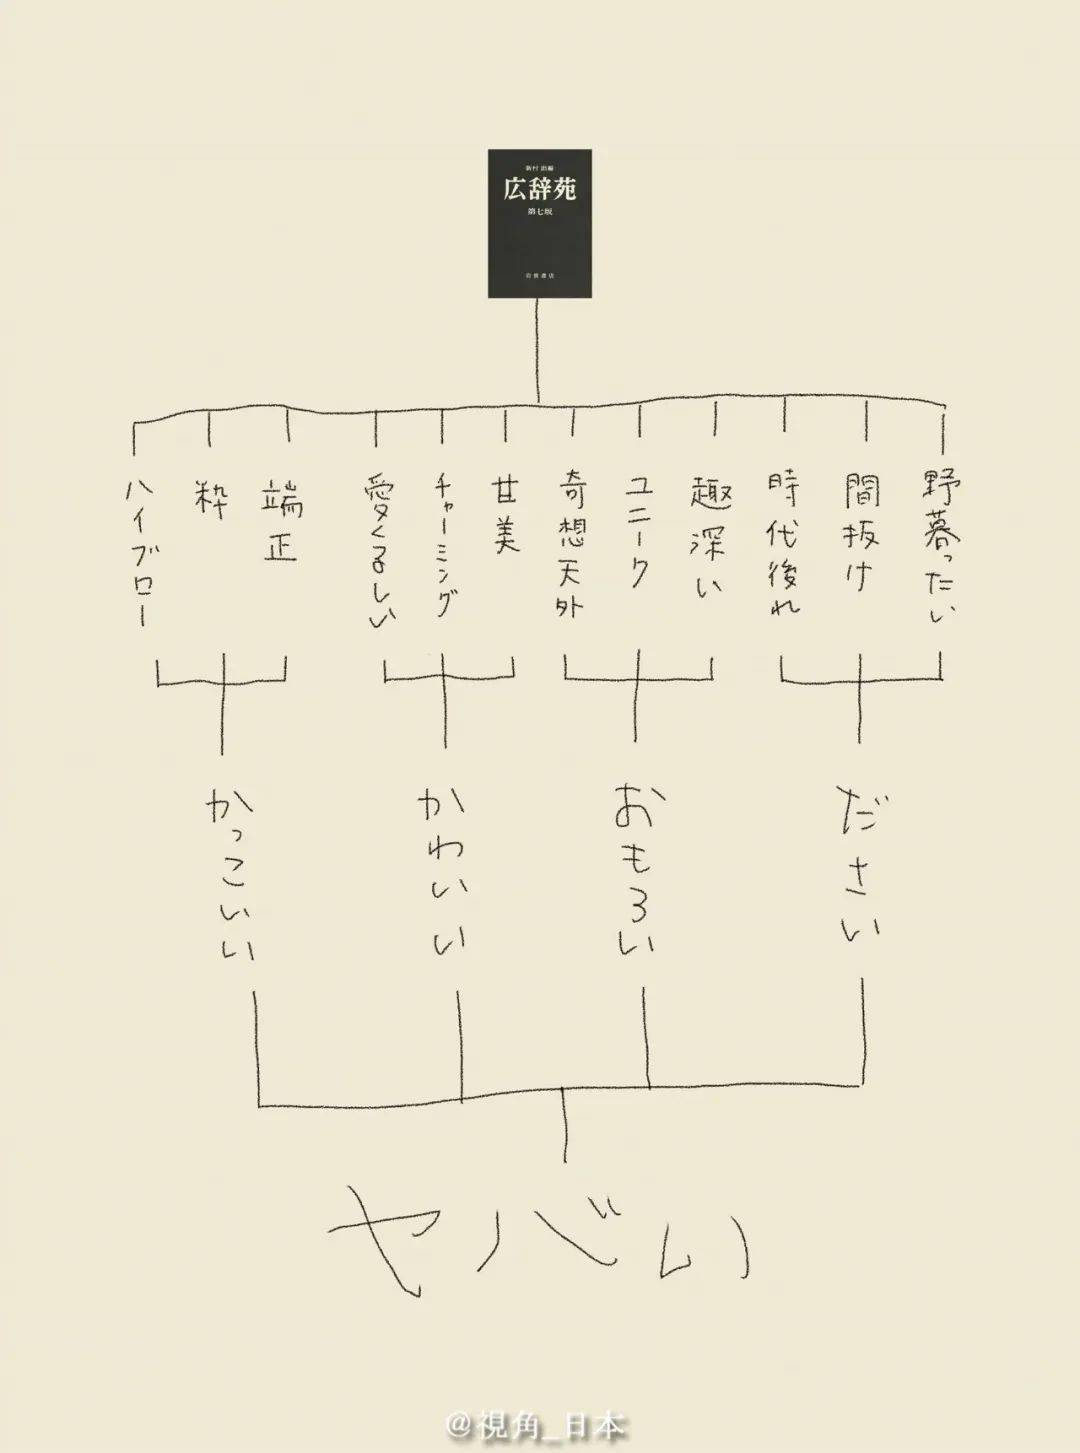 新村 出編
広辞苑
第七版
岩波書店
ハイブロー
粋
端正
愛くるしい
チャーミング
甘美
奇想天外
ユニーク
趣深い
時代後れ
間抜け
野暮ったい
かっこいい
かわいい
おもろい
ださい
ヤバい
@視角_日本